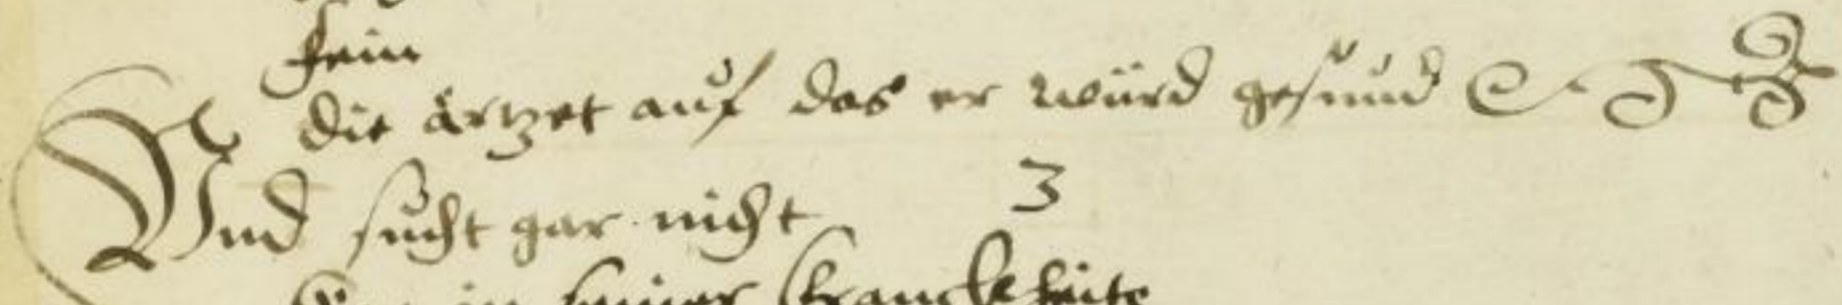 sein
die ärtzet auf das er würd gesund
3
Vnd sucht gar nicht
in seiner kranckheite